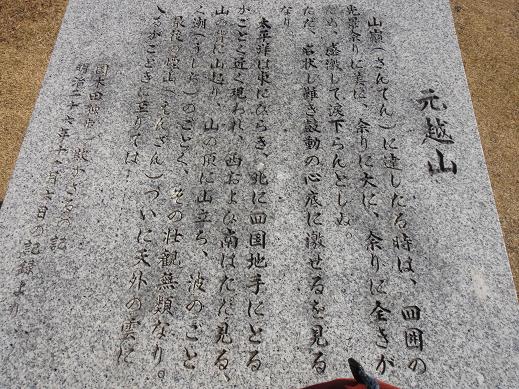 元越山
山巓(さんてん)に達したる時は、四囲の
光景余りに美に、余りに大に、余りに全きが
ため、感激して涙下らんとしぬ。
ただ、名状し難き鼓動の心底に激せるを見る
なり
太平洋は東にひらき、北に四国地手にとる
がごとく近く現われ、西および南はただ見る、
山の背に山起り、山の頂に山立ち、波のごと
く潮(うしお)のごとく、その壮観無類なり。
最後の煙山(えんざん)ついに天外の雲に
入るがごときに至りては…
国木田独歩
明治二十六年十一月
日の記録より